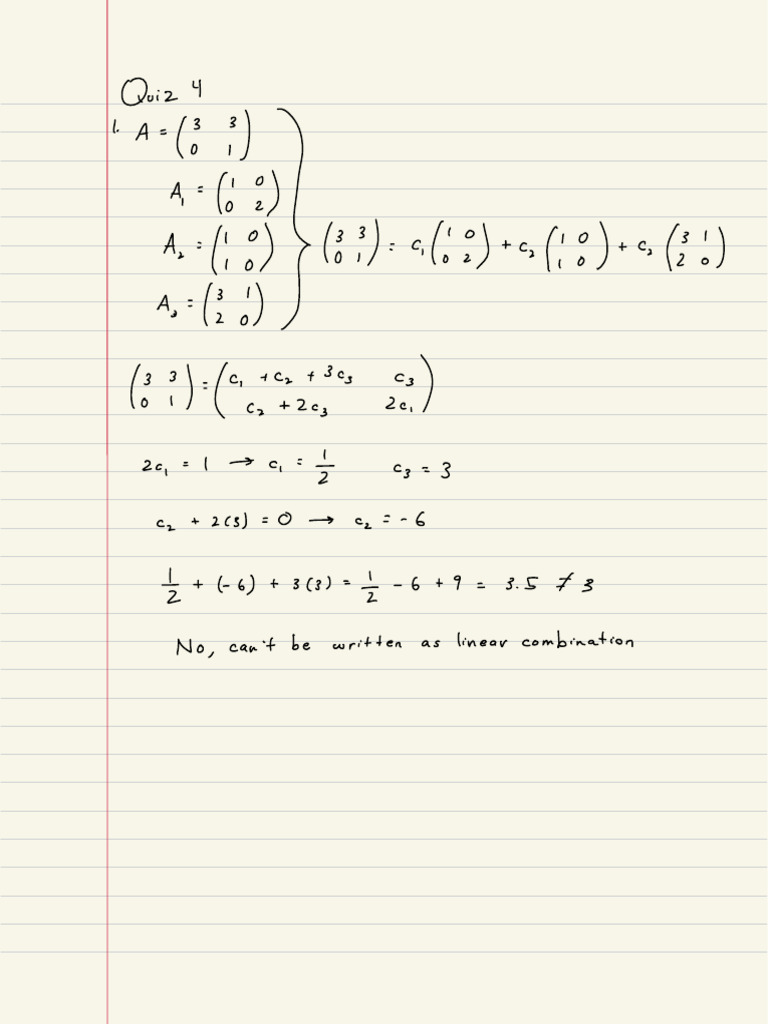 Quiz 4
1. A = (3 3
0 1)
A₁ = (1 0
0 2)
A₂ = (1 0
1 0)
A₃ = (3 1
2 0)
(3 3
0 1) = c₁ (1 0
0 2) + c₂ (1 0
1 0) + c₃ (3 1
2 0)
(3 3
0 1) = (c₁ + c₂ + 3c₃ c₃
c₂ + 2c₃ 2c₁)
2c₁ = 1 → c₁ = 1/2 c₃ = 3
c₂ + 2(3) = 0 → c₂ = -6
1/2 + (-6) + 3(3) = 1/2 - 6 + 9 = 3.5 ≠ 3
No, can't be written as linear combination